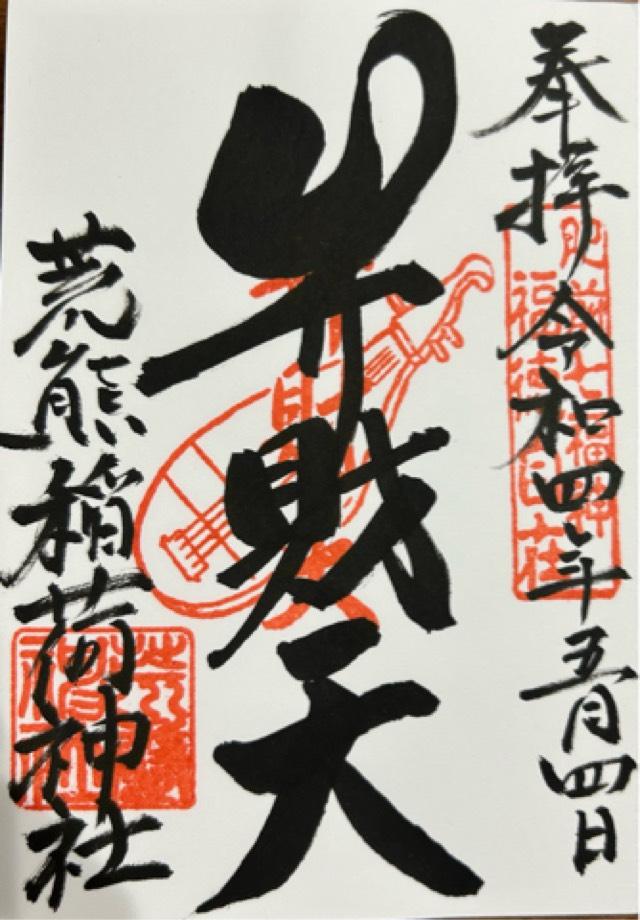 奉拝 令和四年五月四日
弁財天
荒熊稲荷神社